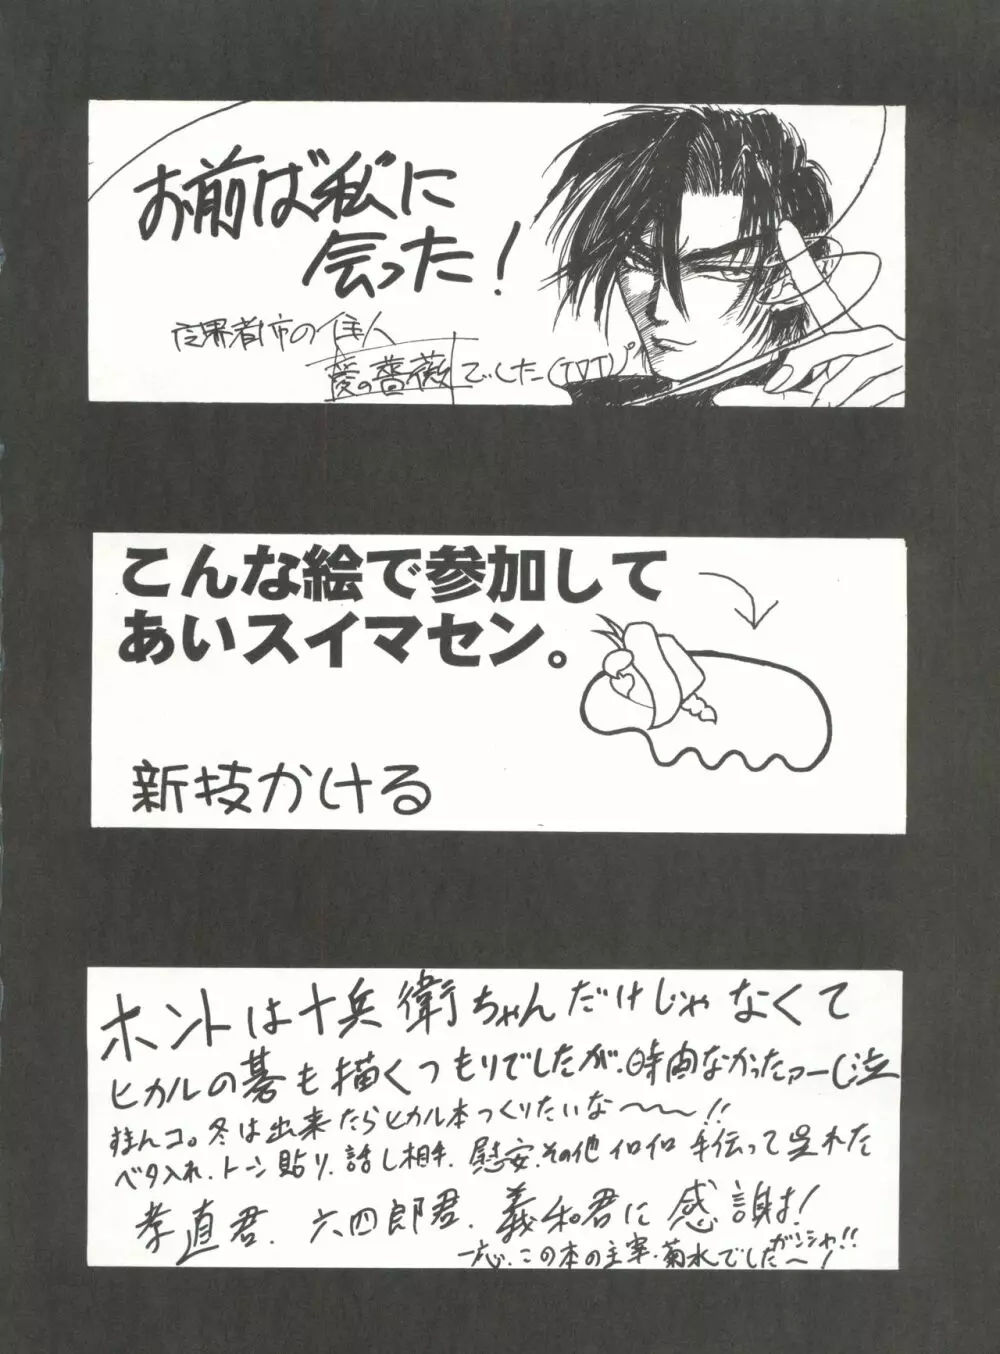 お前は私に
会った!
世界都市の住人
愛の薔薇でした(TVT)
こんな絵で参加して
あいスイマセン。
新技かける
ホントは十兵衛ちゃんだけじゃなくて
ヒカルの碁も描くつもりでしたが、時間なかったァー泣
すまんコ。冬は出来たらヒカル本つくりたいな〜〜!!
ベタ入れ、トーン貼り、話し相手、慰安、その他イロイロ手伝って呉れた
孝直君、六四郎君、義和君に感謝!
ガンシャ!!
一応、この本の主宰・菊水でした〜!